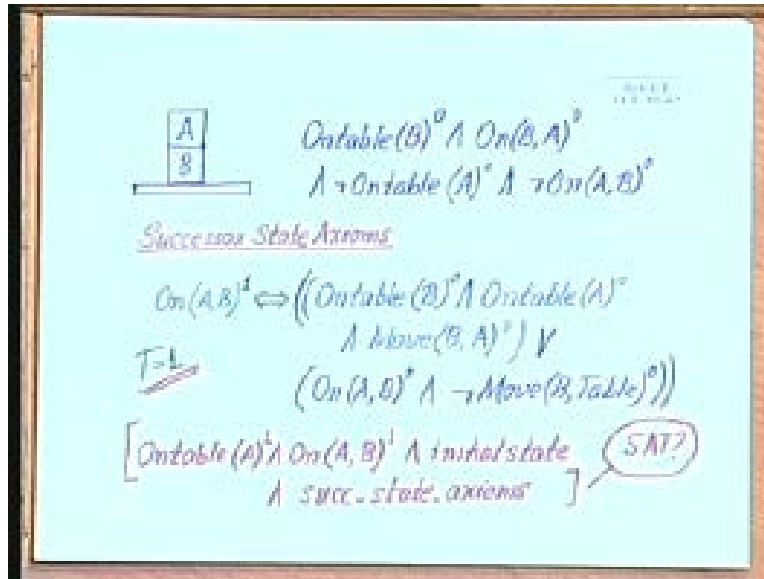 A
B
Ontable(B)⁰ ∧ On(B,A)⁰
∧ ¬Ontable(A)⁰ ∧ ¬On(A,B)⁰
Successor State Axioms
On(A,B)¹ ⇔ ((Ontable(B)⁰ ∧ Ontable(A)⁰
∧ Move(B,A)⁰) ∨
T=1
(On(A,B)⁰ ∧ ¬Move(B,Table)⁰))
[Ontable(A)¹ ∧ On(A,B)¹ ∧ initial state
∧ succ. state. axioms ]
SAT?